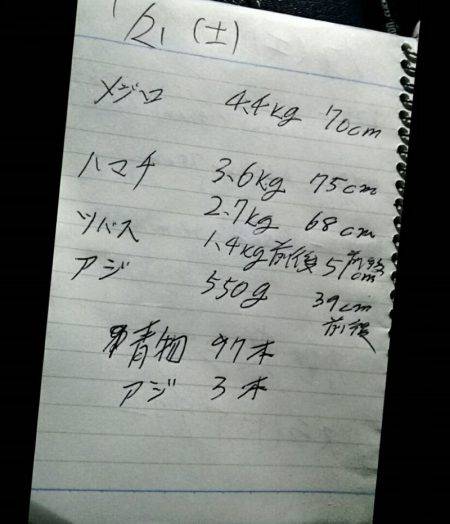 1/21 (土)
メジロ 4.4kg 70cm
ハマチ 3.6kg 75cm
2.7kg 68cm
ツバス 1.4kg前後 51前後cm
アジ 550g 39cm前後
青物 97本
アジ 3本